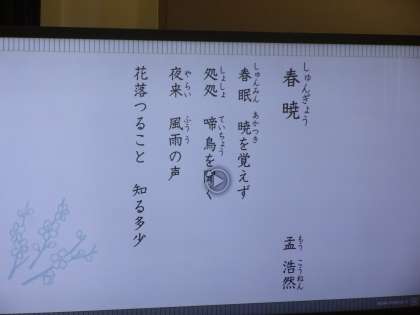 春暁 孟浩然
しゅんぎょう もうこうねん
春眠 暁を覚えず
しゅんみん あかつき
処処 啼鳥を聞く
しょしょ ていちょう
夜来 風雨の声
やらい ふうう
花落つること 知る多少